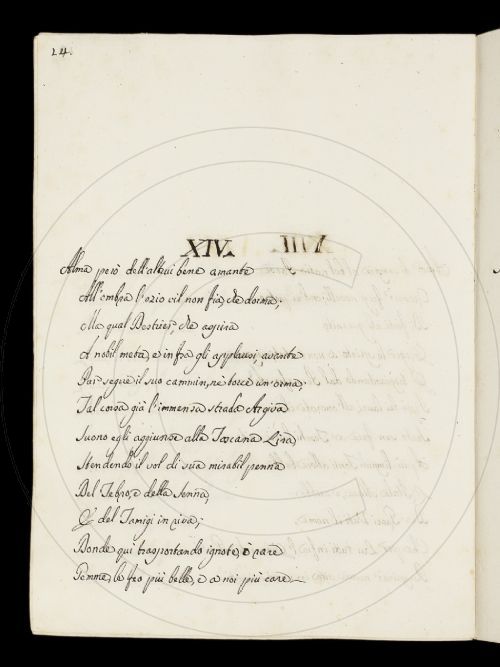 24.
XIV.
Alma però dell'altrui bene amante
All'ombra l'ozio vil non fia, che dorma;
Ma qual Destrier, che aspira
A nobil meta, e infra gli applausi, avante
Pur segue il suo cammin, nè torce un'orma;
Tal corsa già l'immensa strada Argiva
Suono egli aggiunse alla Toscana Lira
Stendendo il vol di sua mirabil penna
Del Tebro, e della Senna,
E del Tamigi in riva;
Donde qui trasportando ignote, e rare
Gemme, le feo più belle, e a noi più care